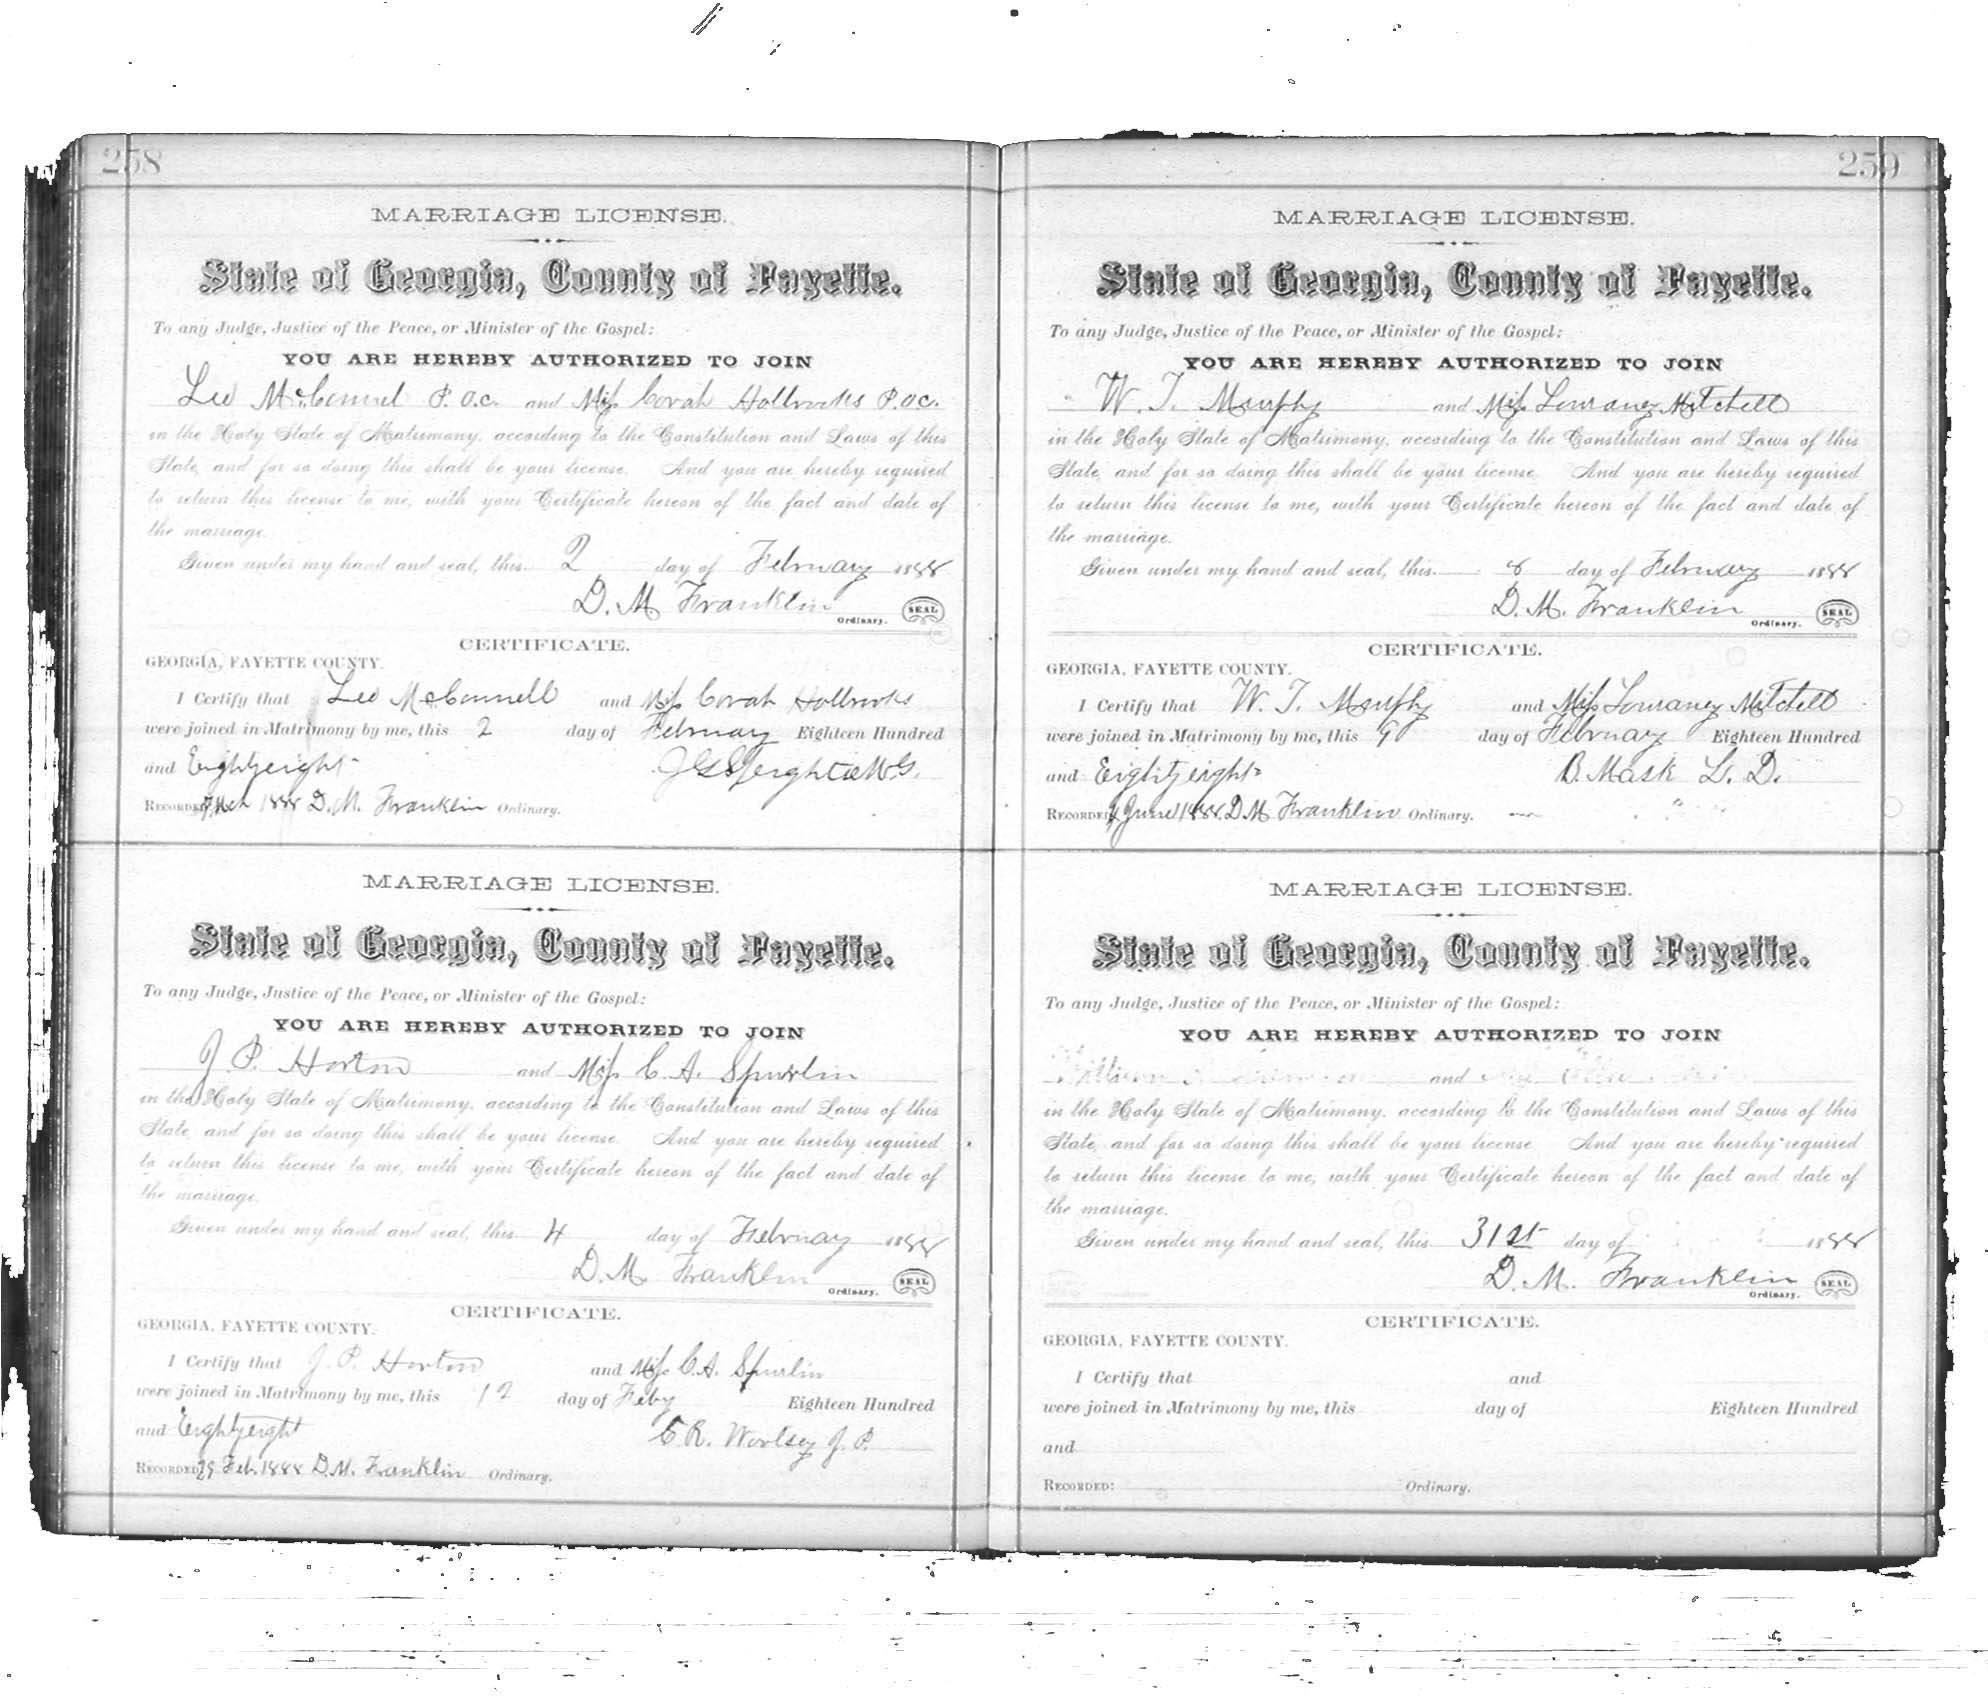 258
MARRIAGE LICENSE.
State of Georgia, County of Fayette.
To any Judge, Justice of the Peace, or Minister of the Gospel:
YOU ARE HEREBY AUTHORIZED TO JOIN
Leo McConnel P.O.C. and Miss Corah Holbrooks P.O.C.
in the Holy State of Matrimony, according to the Constitution and Laws of this
State, and for so doing this shall be your license. And you are hereby required
to return this license to me, with your Certificate hereon of the fact and date of
the marriage.
Given under my hand and seal, this 2 day of February 1888
D. M. Franklin
Ordinary. SEAL
CERTIFICATE.
GEORGIA, FAYETTE COUNTY.
I Certify that Leo McConnell and Miss Corah Holbrooks
were joined in Matrimony by me, this 2 day of February Eighteen Hundred
and Eightyeight
RECORDED 1888 D. M. Franklin Ordinary.
MARRIAGE LICENSE.
State of Georgia, County of Fayette.
To any Judge, Justice of the Peace, or Minister of the Gospel:
YOU ARE HEREBY AUTHORIZED TO JOIN
J. P. Horton and Miss C. A. Spurlin
in the Holy State of Matrimony, according to the Constitution and Laws of this
State, and for so doing this shall be your license. And you are hereby required
to return this license to me, with your Certificate hereon of the fact and date of
the marriage.
Given under my hand and seal, this 4 day of February 1888
D. M. Franklin
Ordinary. SEAL
CERTIFICATE.
GEORGIA, FAYETTE COUNTY.
I Certify that J. P. Horton and Miss C. A. Spurlin
were joined in Matrimony by me, this 12 day of Feby Eighteen Hundred
and Eightyeight C. R. Woolsey J. P.
RECORDED 29 Feb. 1888 D. M. Franklin Ordinary.
259
MARRIAGE LICENSE.
State of Georgia, County of Fayette.
To any Judge, Justice of the Peace, or Minister of the Gospel:
YOU ARE HEREBY AUTHORIZED TO JOIN
W. T. Murphy and Miss Louraney Mitchell
in the Holy State of Matrimony, according to the Constitution and Laws of this
State, and for so doing this shall be your license. And you are hereby required
to return this license to me, with your Certificate hereon of the fact and date of
the marriage.
Given under my hand and seal, this 8 day of February 1888
D. M. Franklin
Ordinary. SEAL
CERTIFICATE.
GEORGIA, FAYETTE COUNTY.
I Certify that W. T. Murphy and Miss Louraney Mitchell
were joined in Matrimony by me, this 9 day of February Eighteen Hundred
and Eightyeight B. Mask L. D.
RECORDED June 1888 D. M. Franklin Ordinary.
MARRIAGE LICENSE.
State of Georgia, County of Fayette.
To any Judge, Justice of the Peace, or Minister of the Gospel:
YOU ARE HEREBY AUTHORIZED TO JOIN
and
in the Holy State of Matrimony, according to the Constitution and Laws of this
State, and for so doing this shall be your license. And you are hereby required
to return this license to me, with your Certificate hereon of the fact and date of
the marriage.
Given under my hand and seal, this 31st day of 1888
D. M. Franklin
Ordinary. SEAL
CERTIFICATE.
GEORGIA, FAYETTE COUNTY.
I Certify that and
were joined in Matrimony by me, this day of Eighteen Hundred
and
RECORDED: Ordinary.